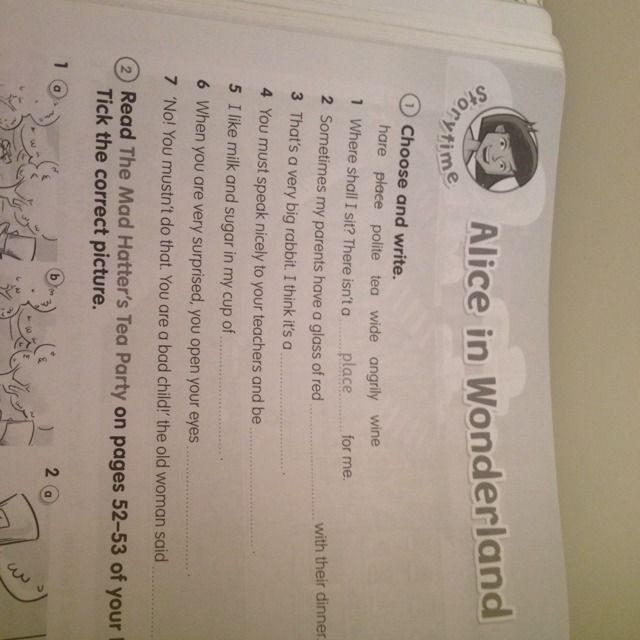 Storytime
Alice in Wonderland
1 Choose and write.
hare place polite tea wide angrily wine
1 Where shall I sit? There isn't a place for me.
2 Sometimes my parents have a glass of red with their dinner.
3 That's a very big rabbit. I think it's a .
4 You must speak nicely to your teachers and be .
5 I like milk and sugar in my cup of .
6 When you are very surprised, you open your eyes .
7 'No! You mustn't do that. You are a bad child!' the old woman said
2 Read The Mad Hatter's Tea Party on pages 52–53 of your
Tick the correct picture.
1 a b 2 a